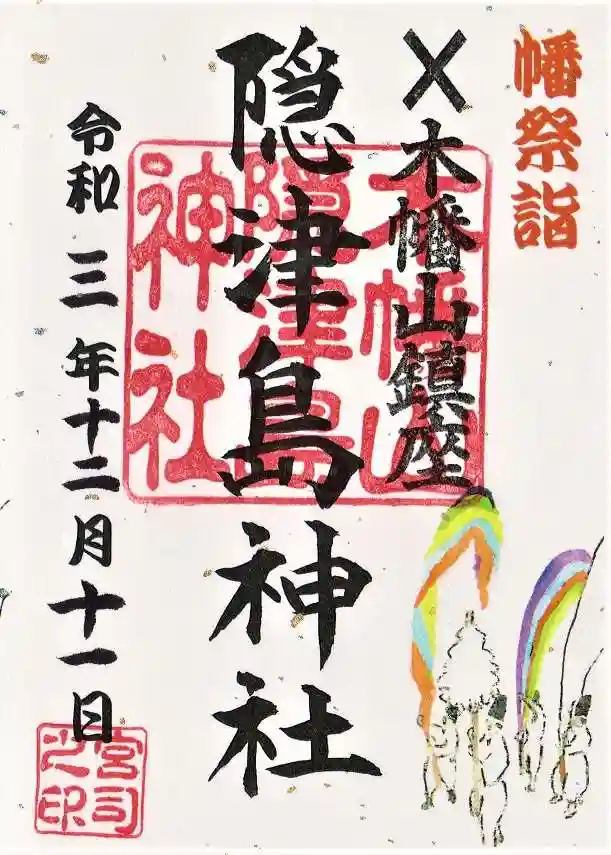 幡祭詣
木幡山鎮座
隠津島神社
木幡山
隠津島
神社
令和三年十二月十一日
宮司之印